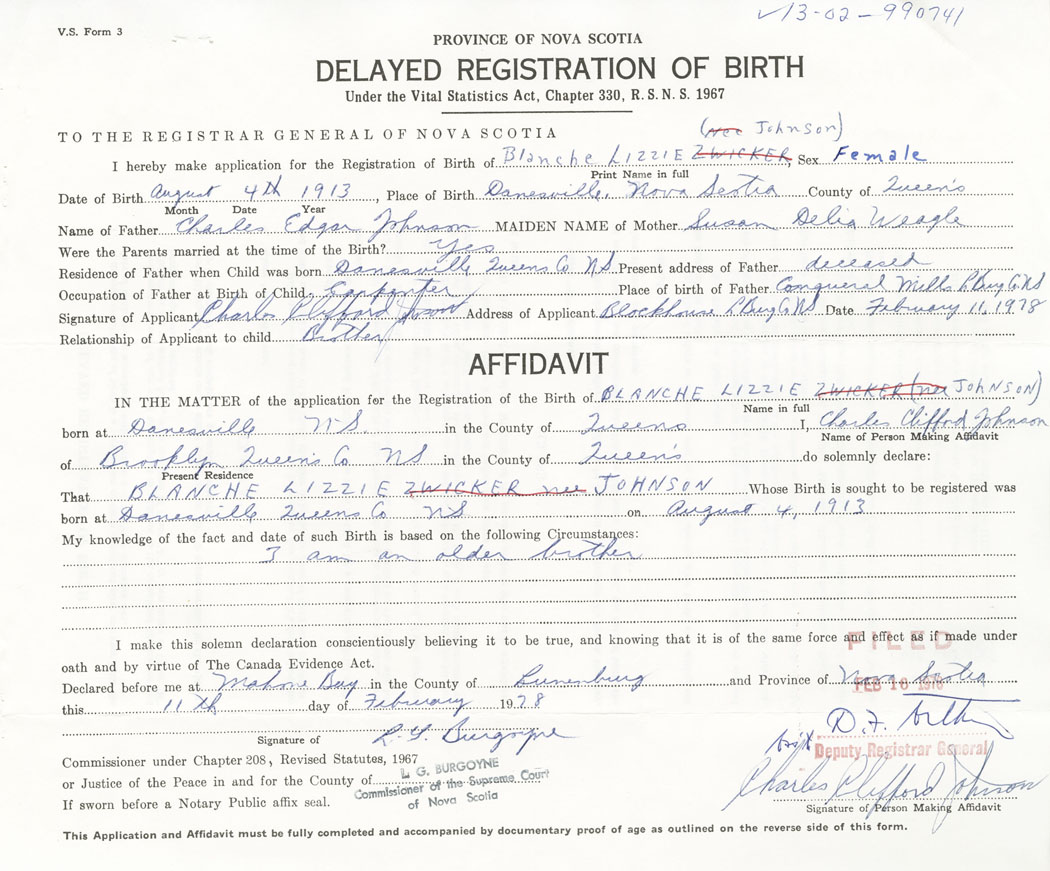 13-02-990741
V.S. Form 3
PROVINCE OF NOVA SCOTIA
DELAYED REGISTRATION OF BIRTH
Under the Vital Statistics Act, Chapter 330, R.S.N.S. 1967
TO THE REGISTRAR GENERAL OF NOVA SCOTIA
(nee Johnson)
I hereby make application for the Registration of Birth of Blanche LIZZIE ZWICKER, Sex Female
Print Name in full
Date of Birth August 4th 1913, Place of Birth Danesville, Nova Scotia County of Queen's
Month Date Year
Name of Father Charles Edgar Johnson MAIDEN NAME of Mother Susan Delia Weagle
Were the Parents married at the time of the Birth? Yes
Residence of Father when Child was born Danesville Queens Co NS Present address of Father deceased
Occupation of Father at Birth of Child Carpenter Place of birth of Father Conqueral Mills L Burg Co NS
Signature of Applicant Charles Clifford Address of Applicant Blockhouse L Burg Co NS Date February 11, 1978
Relationship of Applicant to child Brother
AFFIDAVIT
IN THE MATTER of the application for the Registration of the Birth of BLANCHE LIZZIE ZWICKER (nee JOHNSON)
Name in full
born at Danesville N.S. in the County of Queens I, Charles Clifford Johnson
Name of Person Making Affidavit
of Brooklyn Queens Co NS in the County of Queen's do solemnly declare:
Present Residence
That BLANCHE LIZZIE ZWICKER nee JOHNSON Whose Birth is sought to be registered was
born at Danesville Queens Co NS on August 4, 1913
My knowledge of the fact and date of such Birth is based on the following Circumstances:
I am an older brother
I make this solemn declaration conscientiously believing it to be true, and knowing that it is of the same force and effect as if made under
FILED
oath and by virtue of The Canada Evidence Act.
Declared before me at Mahone Bay in the County of Lunenburg and Province of Nova Scotia
FEB 16 1978
this 11th day of February 1978
Signature of Burgoyne
D.F.
Deputy Registrar General
Commissioner under Chapter 208, Revised Statutes, 1967
or Justice of the Peace in and for the County of
L. G. BURGOYNE
Commissioner of the Supreme Court
of Nova Scotia
If sworn before a Notary Public affix seal.
Charles Clifford Johnson
Signature of Person Making Affidavit
This Application and Affidavit must be fully completed and accompanied by documentary proof of age as outlined on the reverse side of this form.